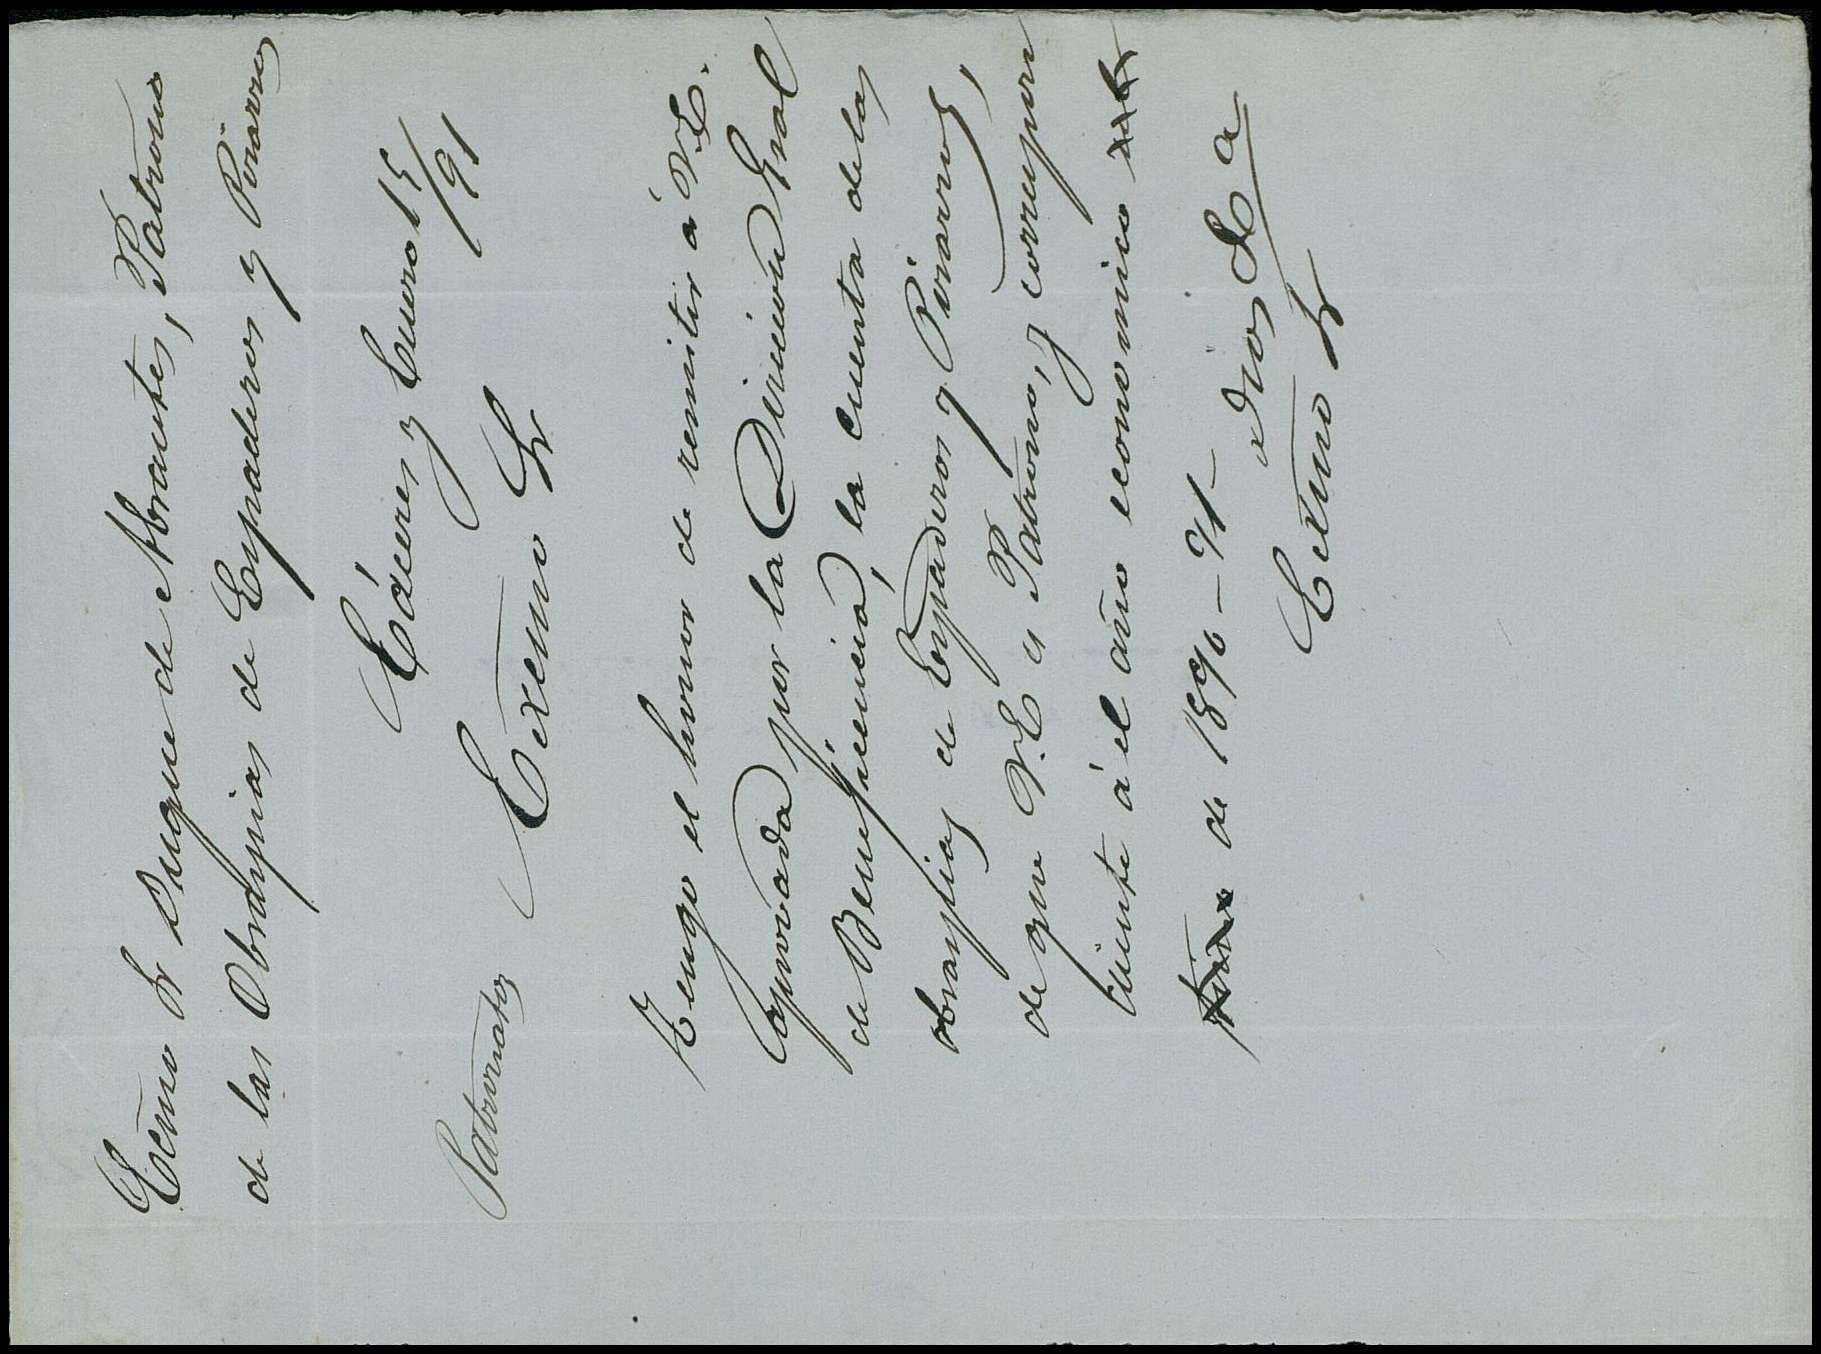 Excmo Sr Duque de Abrantes, Patrono
de las Obrapias de Espaderos y Pizarros
Cáceres y Enero 15/91
Patronatos Excmo Sr
Tengo el honor de remitir á V.E.
aprovada por la Dirección Gral
de Beneficiencia, la cuenta de las
obrapias de Espaderos y Pizarros,
de que V.E es Patrono, y correspon
diente á el año economico
de 1890-91-
Dios &a
Excmo Sr